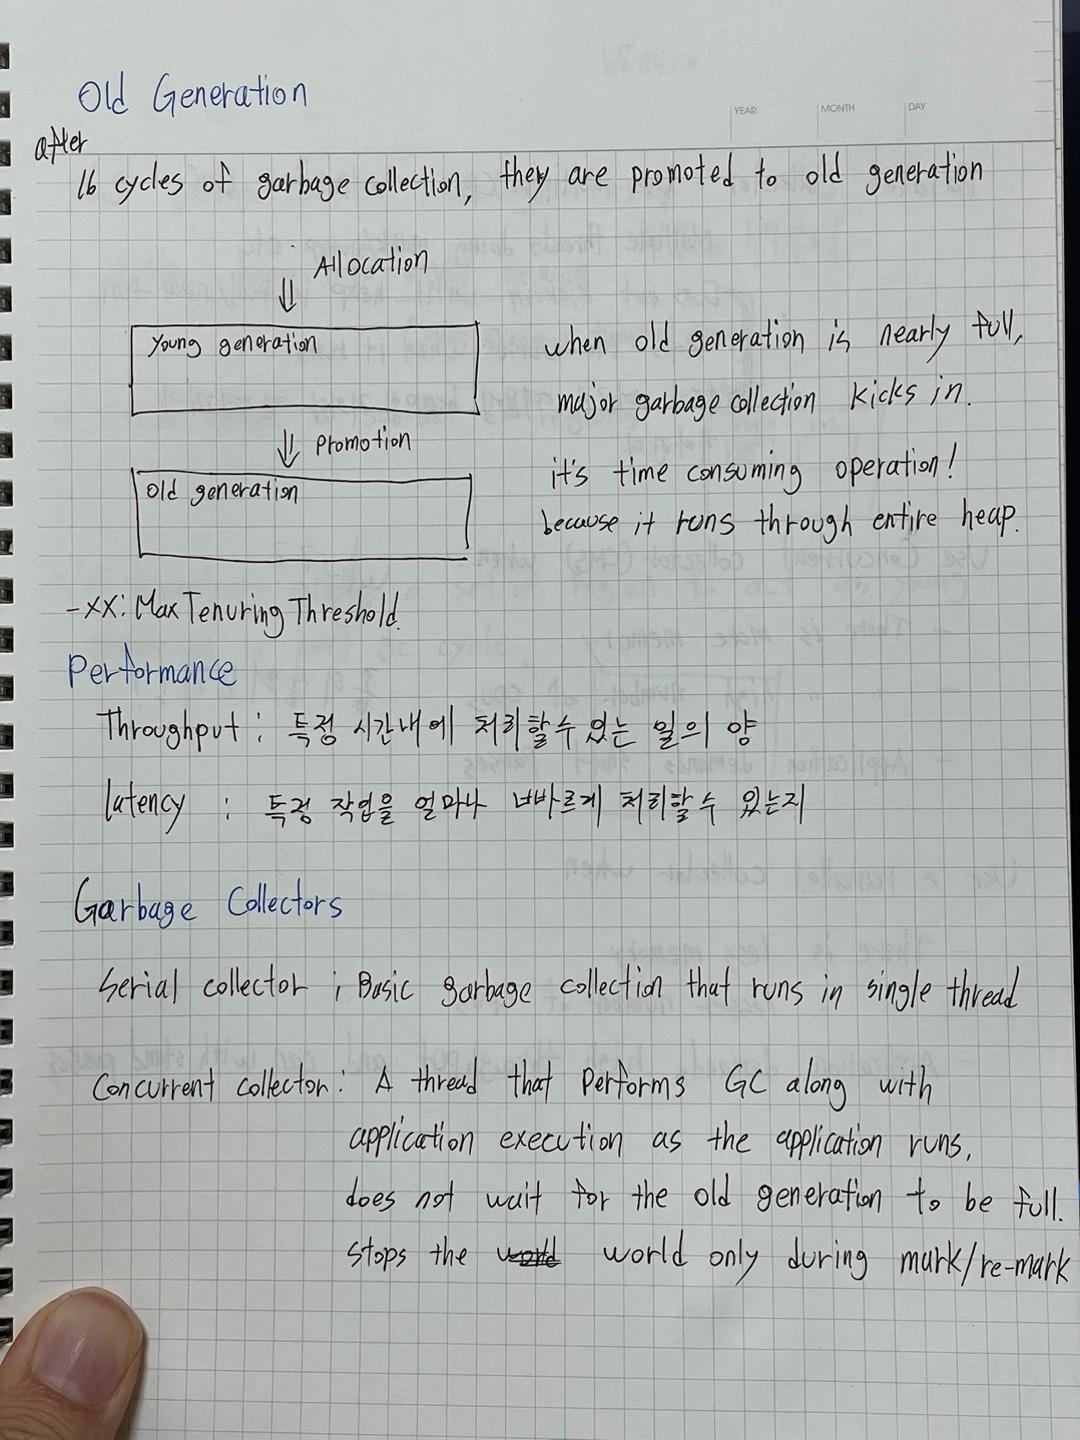 Old Generation
YEAR MONTH DAY
after
16 cycles of garbage collection, they are promoted to old generation
Allocation
Young generation
Promotion
Old generation
when old generation is nearly full,
major garbage collection kicks in.
it's time consuming operation!
because it runs through entire heap.
-XX: Max Tenuring Threshold.
Performance
Throughput : 특정 시간내에 처리할수 있는 일의 양
latency : 특정 작업을 얼마나 너바르게 처리할수 있는지
Garbage Collectors
Serial collector ; Basic garbage collection that runs in single thread
Concurrent collector : A thread that performs GC along with
application execution as the application runs,
does not wait for the old generation to be full.
stops the world only during mark/re-mark